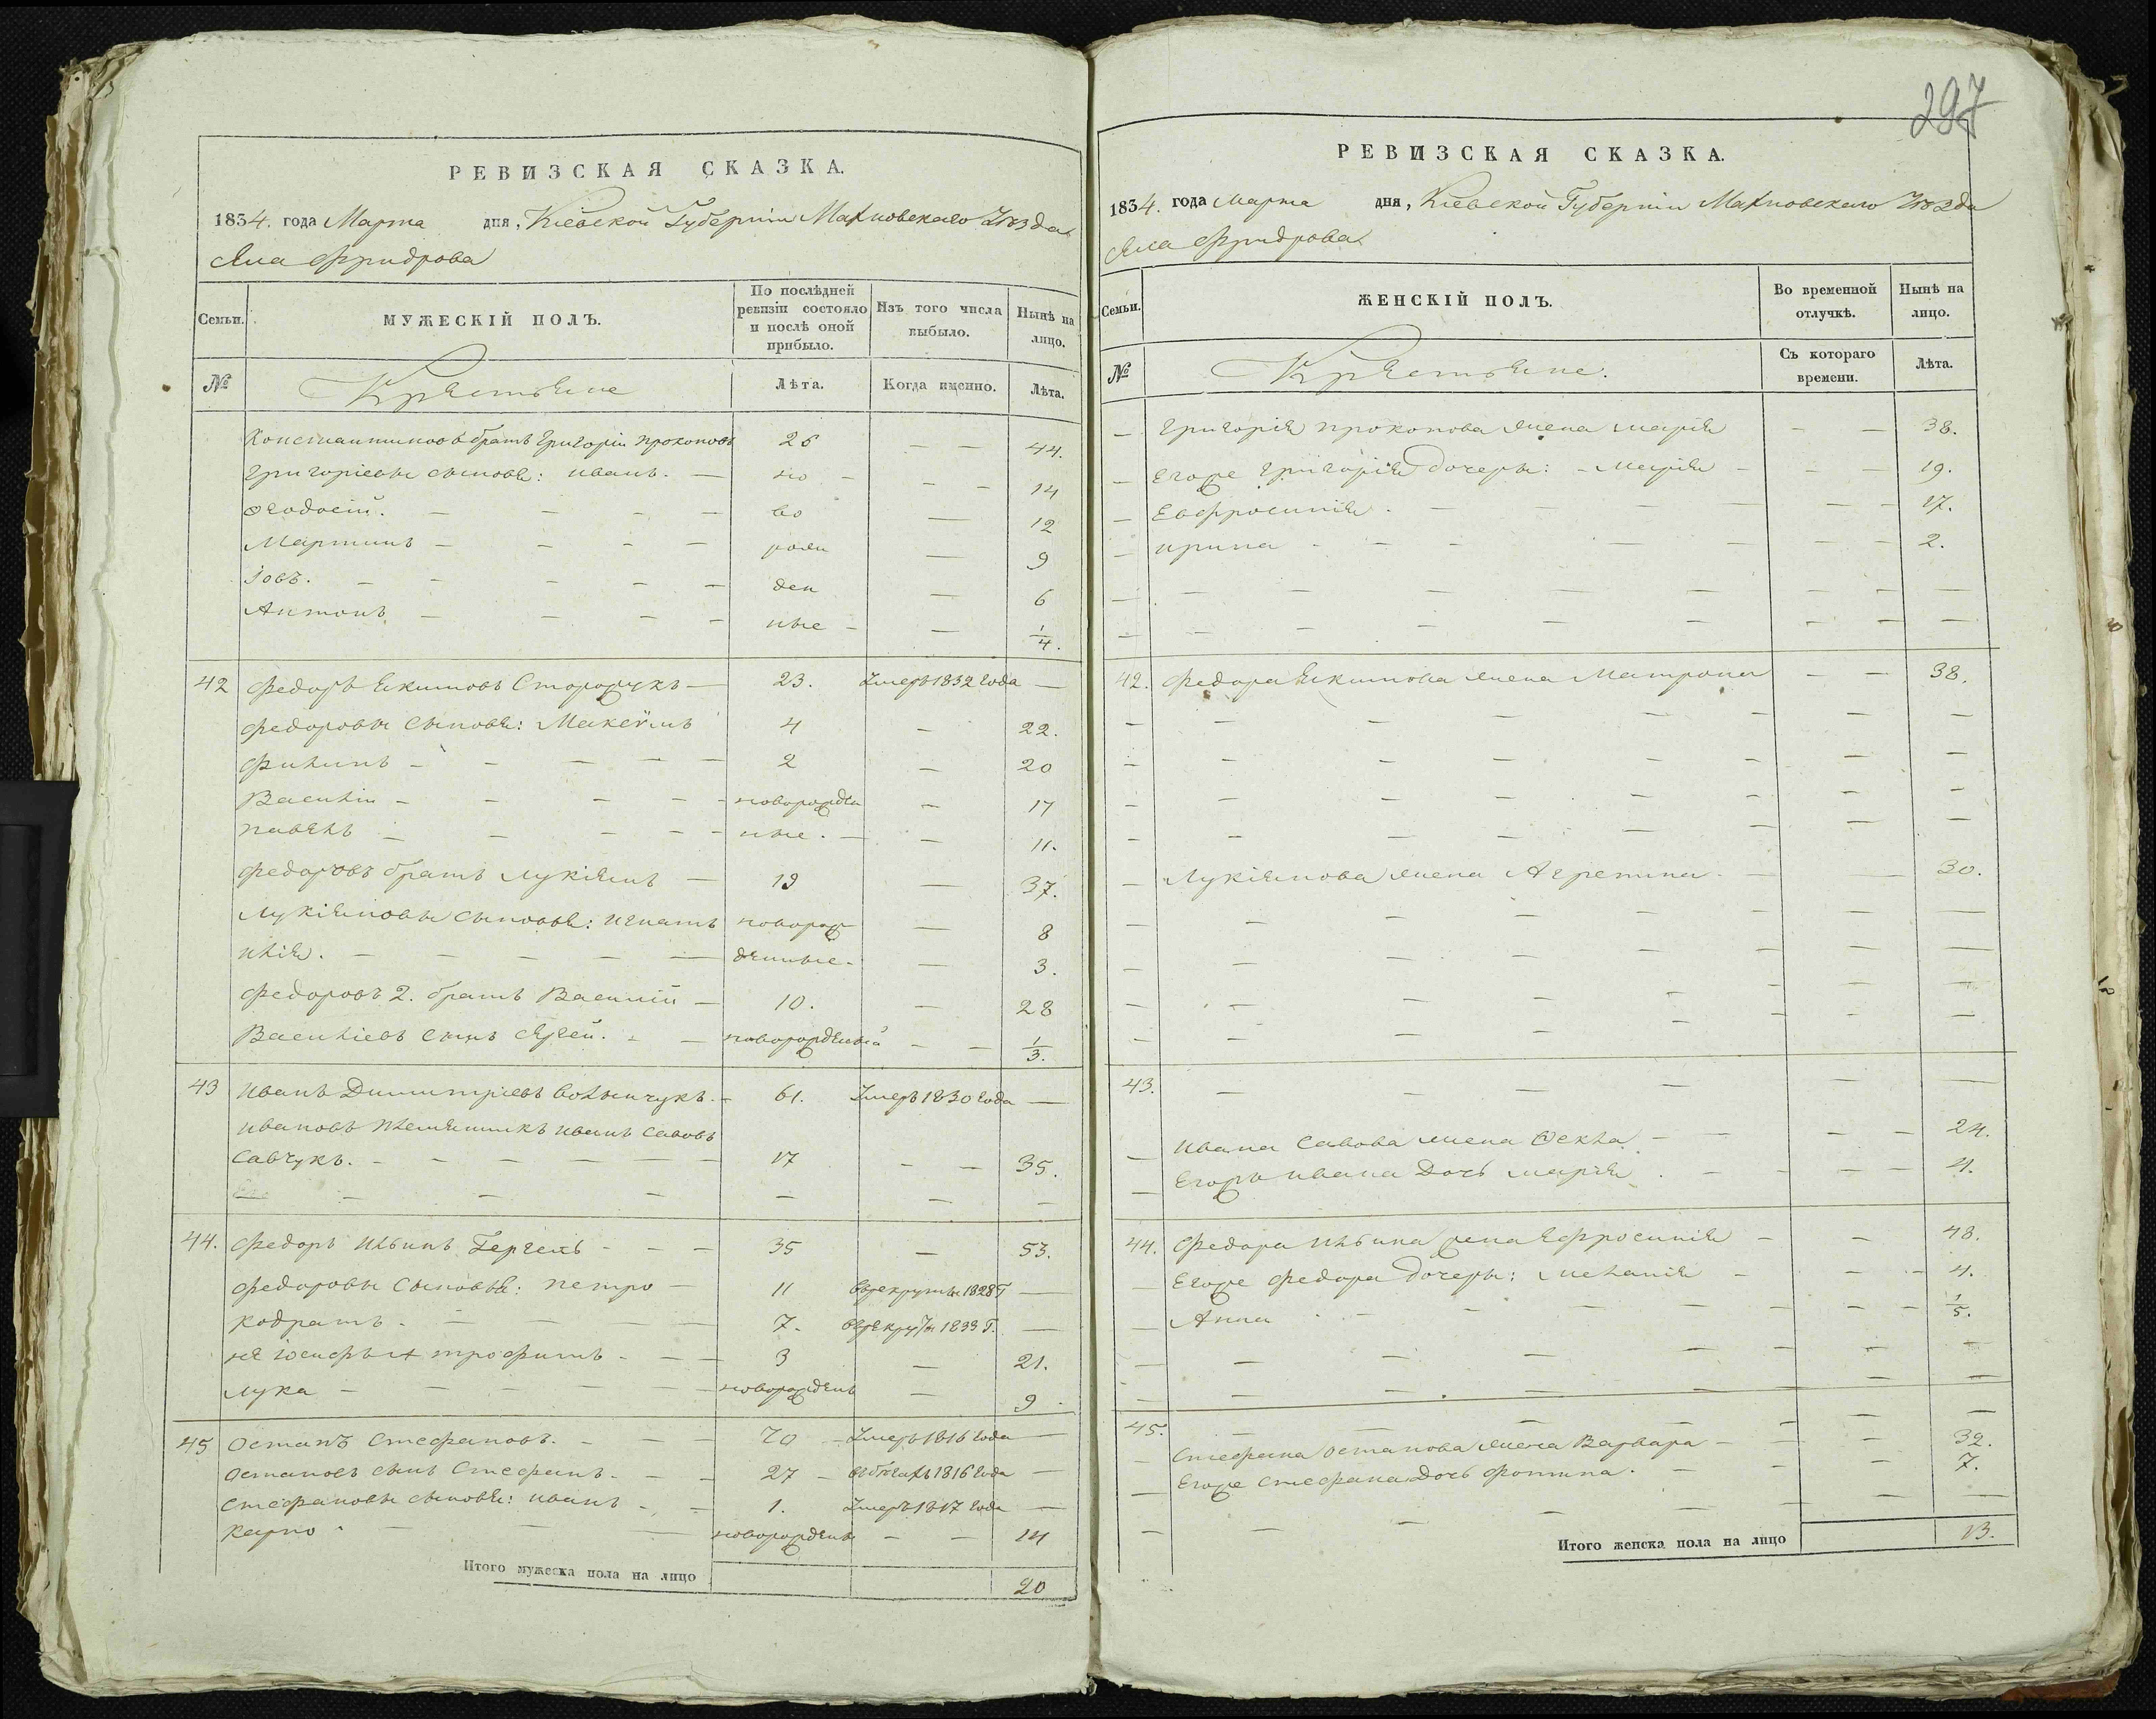 РЕВИЗСКАЯ СКАЗКА.
1834. года Марта дня, Кіевской Губерніи Махновскаго Уѣзда
РЕВИЗСКАЯ СКАЗКА.
Семьи.
МУЖЕСКІЙ ПОЛЪ.
По послѣдней ревизіи состояло и послѣ оной прибыло.
Изъ того числа выбыло.
Нынѣ на лицо.
№ Крестьяне Лѣта. Когда именно. Лѣта.
Константиновъ братъ Григорій Прокоповъ 26 — — 44.
Григоріевы сыновья: Иванъ. — но — — — 14
Ѳеодосій. — — — — во — 12
Мартинъ — — — — рож — 9
Іовъ. — — — — — ден — 6
Антонъ — — — — ные — — 1/4.
42 Федоръ Якимовъ Сторожукъ — 23. Умеръ 1832 года —
Федоровы сыновья: Максимъ 4 — 22.
Филипъ — — — — — 2 — 20
Василій — — — — — новорожден — 17
Павелъ — — — — — ные. — — 11.
Федоровъ братъ Лукіянъ — 19 — 37.
Лукіяновы сыновья: Игнатъ новорож — 8
Илія. — — — — — денные. — 3.
Федоровъ 2. братъ Василій — 10. — 28
Василіевъ сынъ Сергей. — — новорожденый — — 1/3.
43 Иванъ Димитріевъ Волынчукъ. — 61. Умеръ 1830 года —
Ивановъ племянникъ Иванъ Савовъ
Савчукъ. — — — — — — 17 — — 35.
— — — — — —
44. Федоръ Ильинъ Гергель — — — 35 — 53.
Федоровы сыновья: Петро — 11 в рекруты 1828 г —
Кодратъ. — — — — 7. в рекруты 1833 г. —
не Іосифъ а Трофимъ. — — 3 — 21.
Лука — — — — — — новорожденъ — 9.
45 Остапъ Стефановъ. — — — 70 — Умеръ 1816 года —
Остаповъ сынъ Стефанъ. — — 27 — въ бегахъ 1816 года —
Стефановы сыновья: Иванъ — — 1. Умеръ 1817 года —
Карпо. — — — новорожденъ — — 14
Итого мужеска пола на лицо 20
297
1834. года Марта дня, Кіевской Губерніи Махновскаго Уѣзда
Семьи.
ЖЕНСКІЙ ПОЛЪ.
Во временной отлучкѣ.
Нынѣ на лицо.
№ Крестьяне. Съ котораго времени. Лѣта.
— Григорія Прокопова жена Марія — — 38.
— Егоже Григорія дочери: — Марія — — — 19.
— Евфросинія. — — — — — — 17.
— Ирина — — — — — — — 2.
42. Федора Якимова жена Матрона — — 38.
— Лукіянова жена Агрепина — — 30.
43. — — — — —
— Ивана Савова жена Ѳекла — — — — 24.
— Егожъ Ивана дочь Марія. — — — — 4.
44. Федора Ильина жена Ефросинія — — 48.
— Егоже Федора дочери: Меланія — — — 4.
— Анна — — — — — — 1/5.
45. — — — — — —
— Стефана Остапова жена Варвара — — — 32.
— Егоже Стефана дочь Фотина. — — — 7.
Итого женска пола на лицо 13.